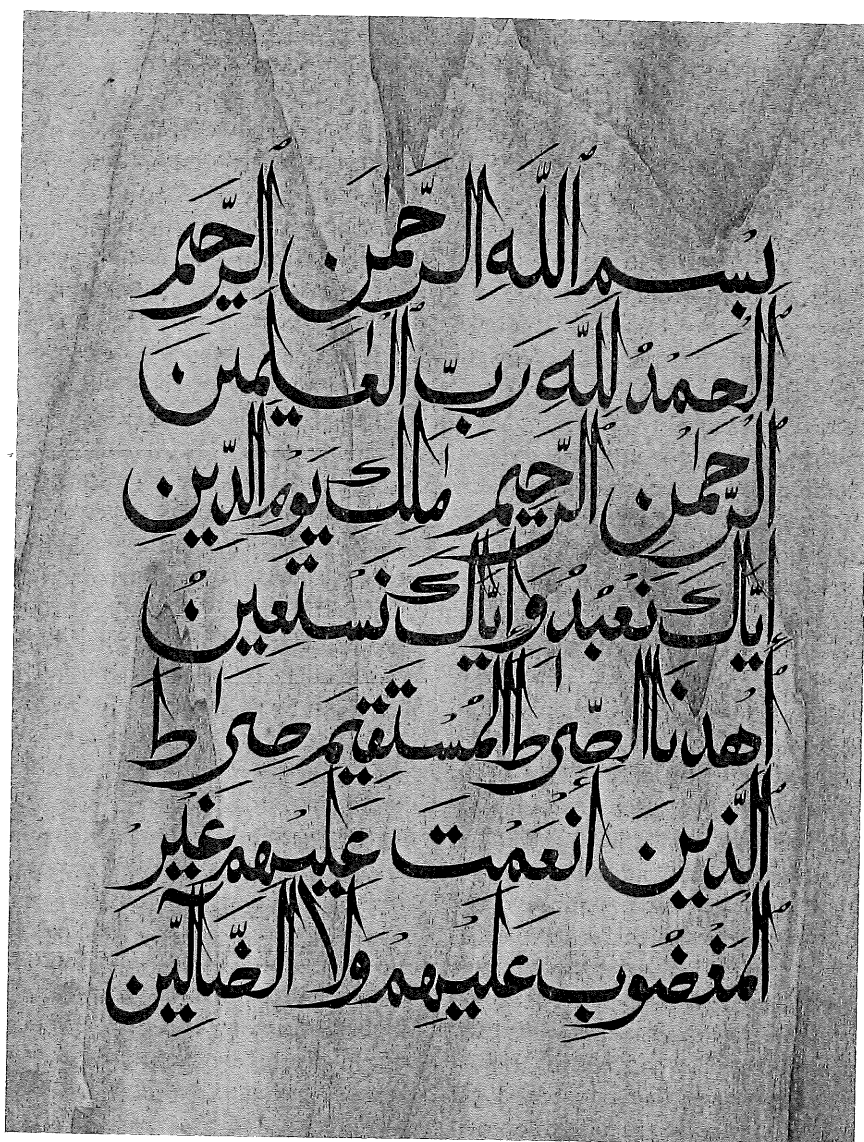 بِسْمِ ٱللَّهِ ٱلرَّحْمَٰنِ ٱلرَّحِيمِ
ٱلْحَمْدُ لِلَّهِ رَبِّ ٱلْعَٰلَمِينَ
ٱلرَّحْمَٰنِ ٱلرَّحِيمِ مَٰلِكِ يَوْمِ ٱلدِّينِ
إِيَّاكَ نَعْبُدُ وَإِيَّاكَ نَسْتَعِينُ
ٱهْدِنَا ٱلصِّرَٰطَ ٱلْمُسْتَقِيمَ صِرَٰطَ
ٱلَّذِينَ أَنْعَمْتَ عَلَيْهِمْ غَيْرِ
ٱلْمَغْضُوبِ عَلَيْهِمْ وَلَا ٱلضَّآلِّينَ